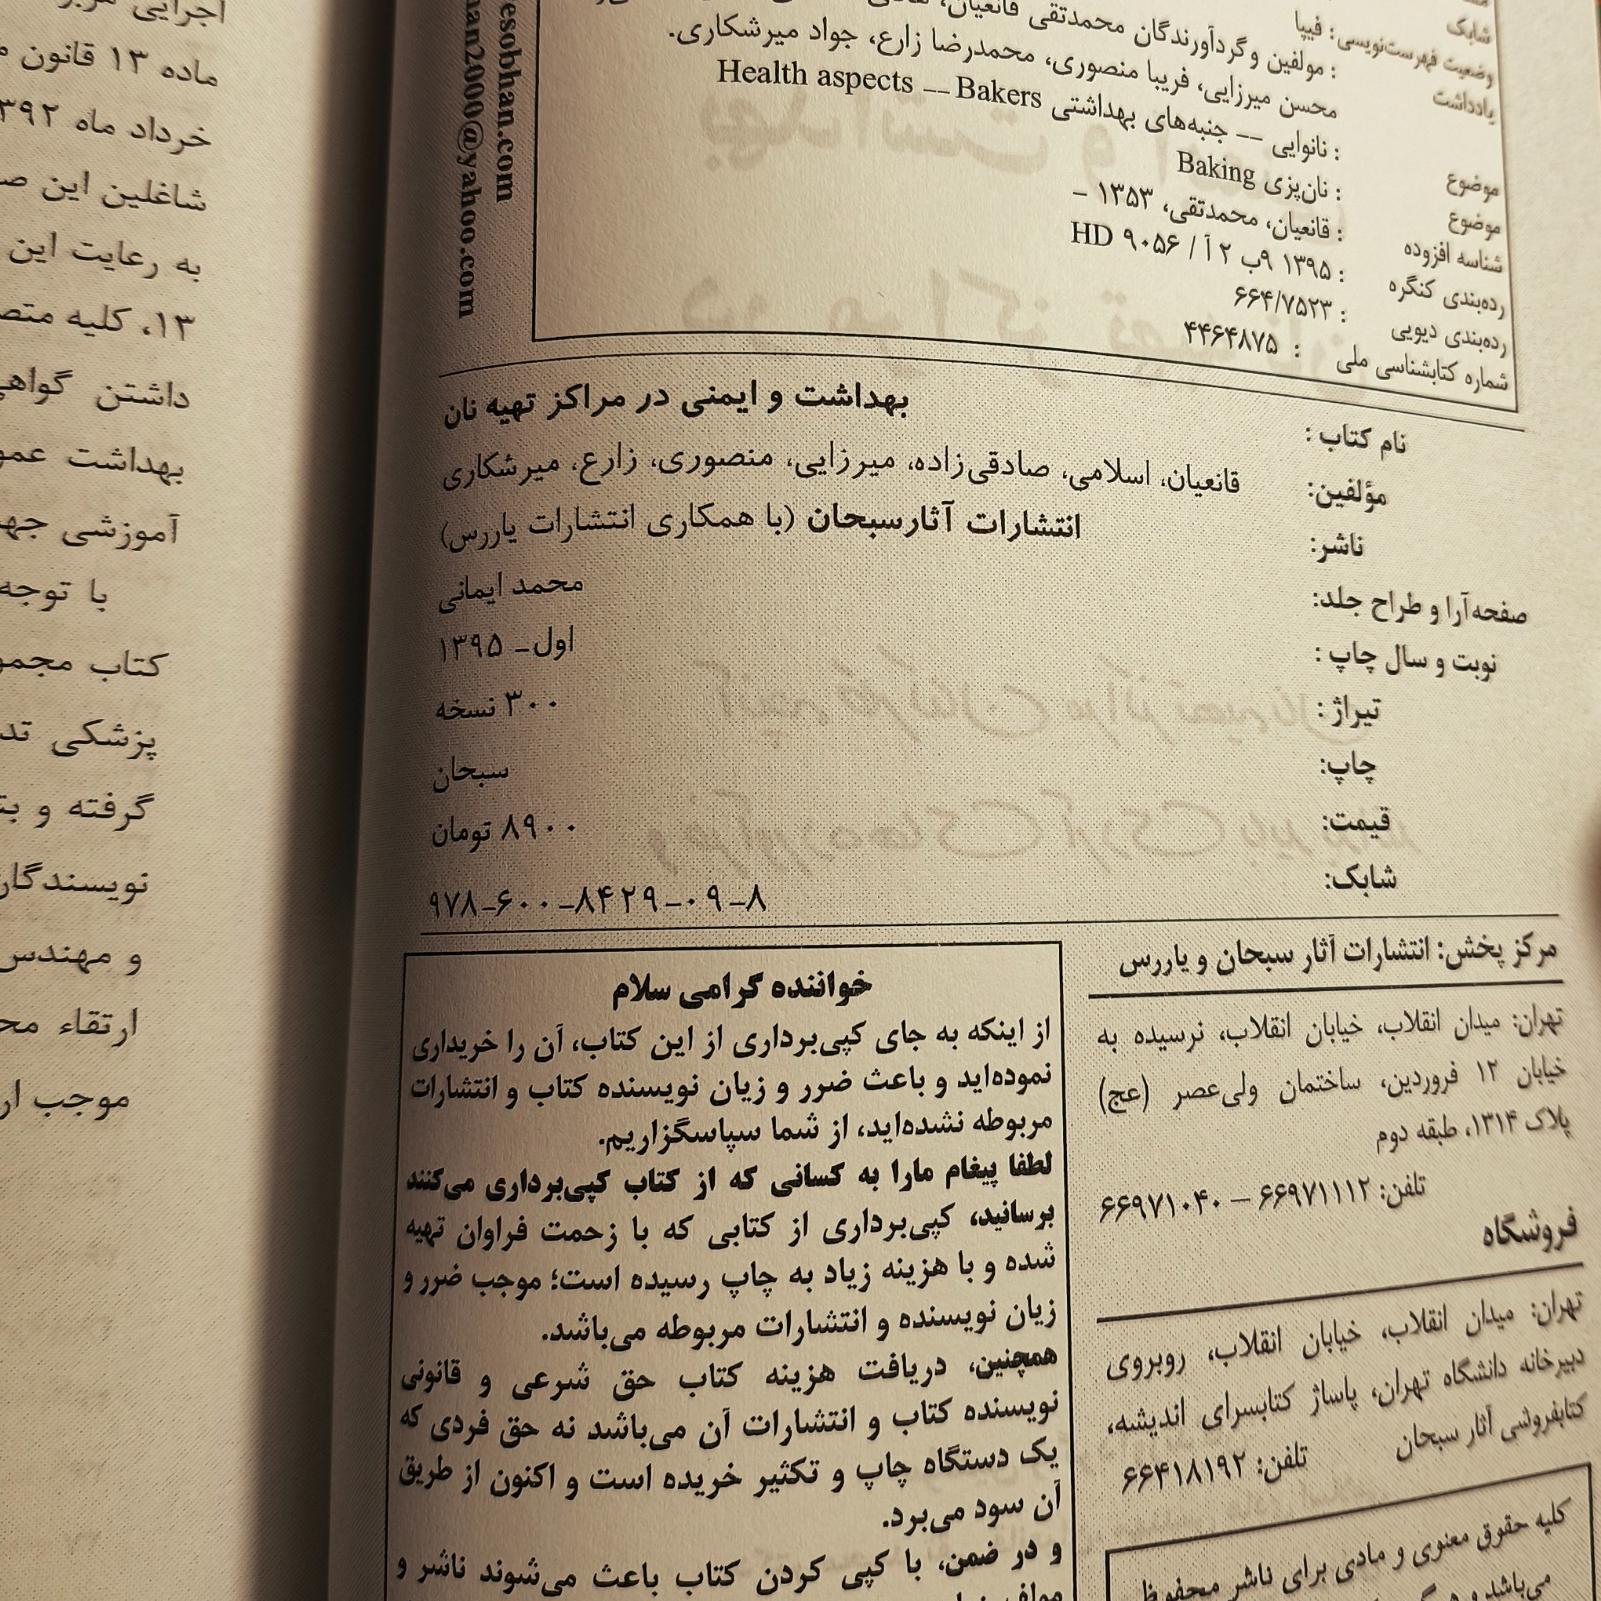 شابک
وضعیت فهرست‌نویسی : فیپا
یادداشت : مولفین و گردآورندگان محمدتقی قانعیان،
محسن میرزایی، فریبا منصوری، محمدرضا زارع، جواد میرشکاری.
موضوع : نانوایی -- جنبه‌های بهداشتی Health aspects -- Bakers
موضوع : نان‌پزی Baking
شناسه افزوده : قانعیان، محمدتقی، ۱۳۵۳ -
رده‌بندی کنگره : ۱۳۹۵ ۹ب ۲آ / HD ۹۰۵۶
رده‌بندی دیویی : ۶۶۴/۷۵۲۳
شماره کتابشناسی ملی : ۴۴۶۴۸۷۵
esobhan.com
an2000@yahoo.com
نام کتاب : بهداشت و ایمنی در مراکز تهیه نان
مؤلفین: قانعیان، اسلامی، صادقی‌زاده، میرزایی، منصوری، زارع، میرشکاری
ناشر: انتشارات آثارسبحان (با همکاری انتشارات یاررس)
صفحه‌آرا و طراح جلد: محمد ایمانی
نوبت و سال چاپ : اول- ۱۳۹۵
تیراژ : ۳۰۰ نسخه
چاپ: سبحان
قیمت: ۸۹۰۰ تومان
شابک: ۹۷۸-۶۰۰-۸۴۲۹-۰۹-۸
مرکز پخش: انتشارات آثار سبحان و یاررس
تهران: میدان انقلاب، خیابان انقلاب، نرسیده به
خیابان ۱۲ فروردین، ساختمان ولی‌عصر (عج)
پلاک ۱۳۱۴، طبقه دوم
تلفن: ۶۶۹۷۱۱۱۲ – ۶۶۹۷۱۰۴۰
فروشگاه
تهران: میدان انقلاب، خیابان انقلاب، روبروی
دبیرخانه دانشگاه تهران، پاساژ کتابسرای اندیشه،
کتابفروشی آثار سبحان تلفن: ۶۶۴۱۸۱۹۲
کلیه حقوق معنوی و مادی برای ناشر محفوظ
می‌باشد و
خواننده گرامی سلام
از اینکه به جای کپی‌برداری از این کتاب، آن را خریداری
نموده‌اید و باعث ضرر و زیان نویسنده کتاب و انتشارات
مربوطه نشده‌اید، از شما سپاسگزاریم.
لطفا پیغام مارا به کسانی که از کتاب کپی‌برداری می‌کنند
برسانید، کپی‌برداری از کتابی که با زحمت فراوان تهیه
شده و با هزینه زیاد به چاپ رسیده است؛ موجب ضرر و
زیان نویسنده و انتشارات مربوطه می‌باشد.
همچنین، دریافت هزینه کتاب حق شرعی و قانونی
نویسنده کتاب و انتشارات آن می‌باشد نه حق فردی که
یک دستگاه چاپ و تکثیر خریده است و اکنون از طریق
آن سود می‌برد.
و در ضمن، با کپی کردن کتاب باعث می‌شوند ناشر و
اجرایی
ماده ۱۳ قانون
خرداد ماه
شاغلین این
به رعایت این
۱۳، کلیه
داشتن
بهداشت
آموزشی
با توجه
کتاب
پزشکی
گرفته و
نویسندگان
و مهندس
ارتقاء
موجب